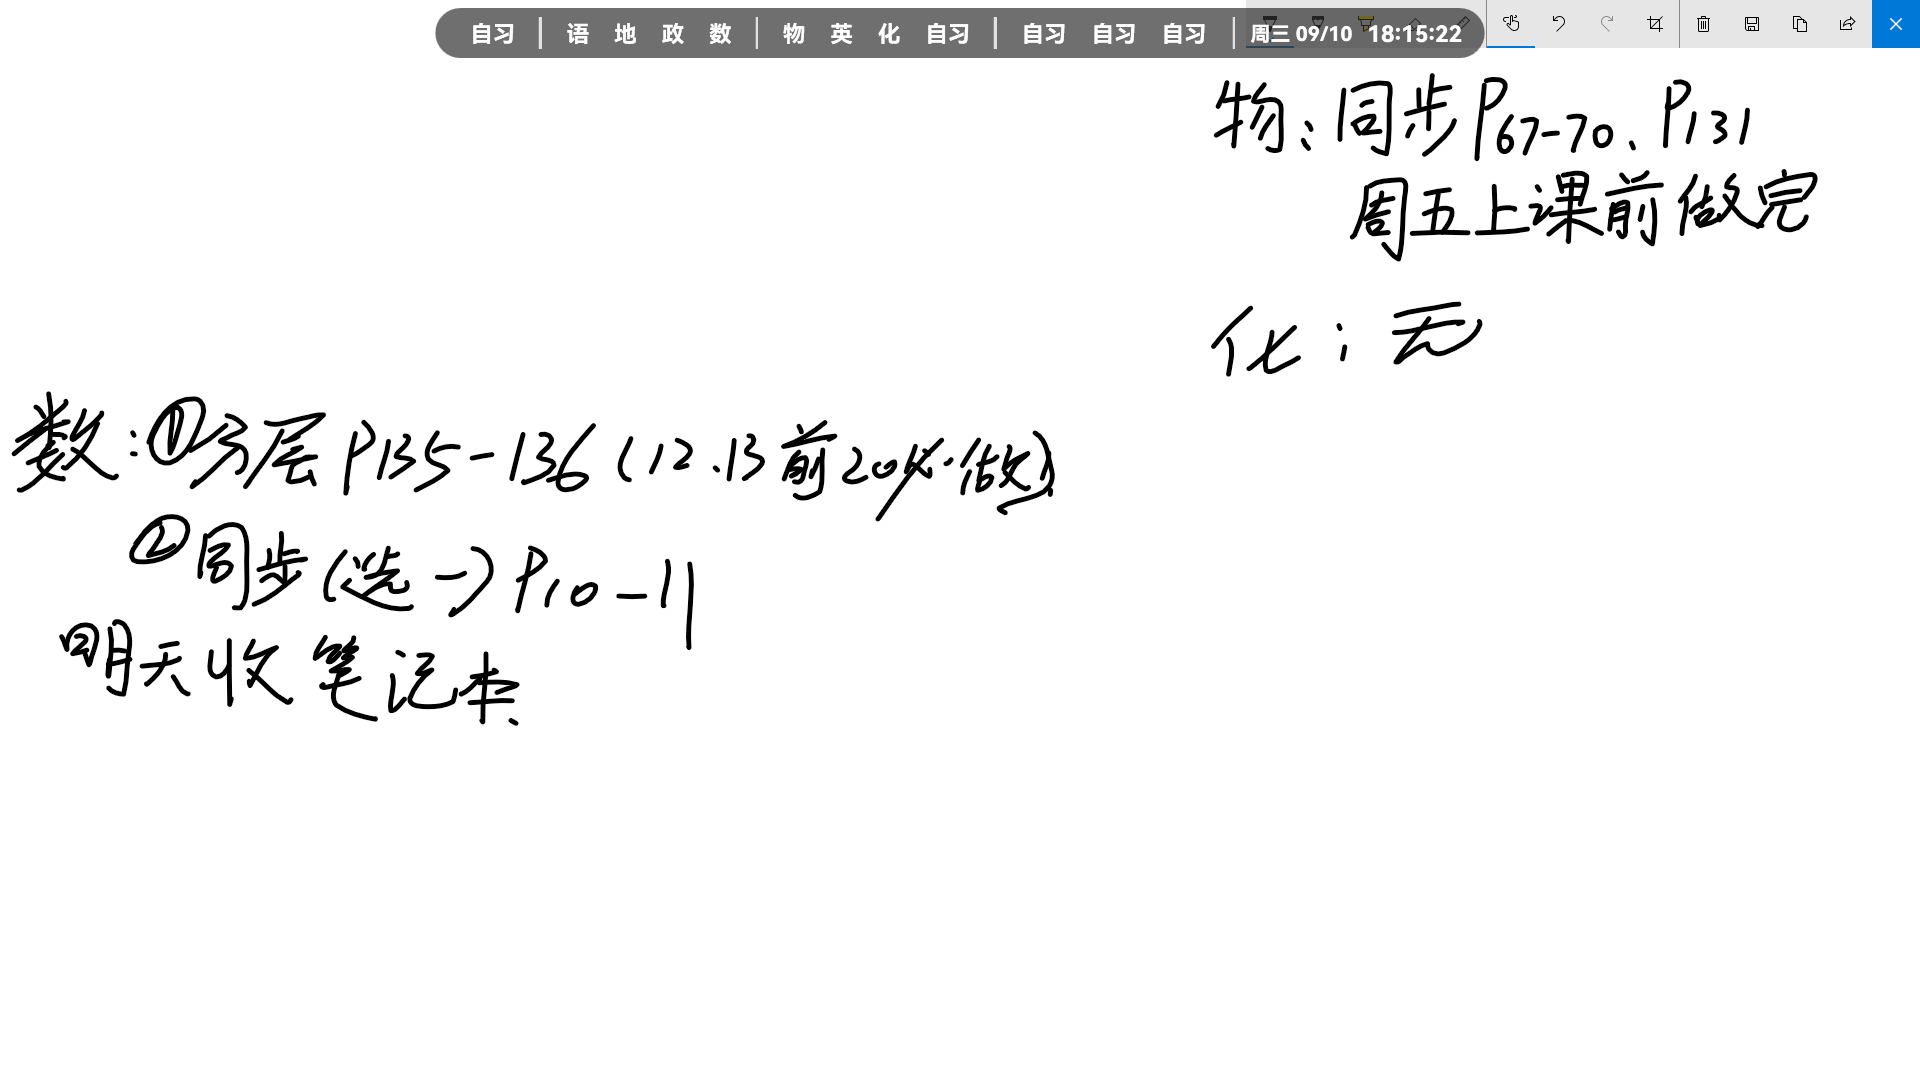 自习 | 语 地 政 数 | 物 英 化 自习 | 自习 自习 自习 | 周三 09/10 18:15:22
物：同步P67-70、P131
周五上课前做完
化：无
数：①分层P135-136（12.13前20必做）
②同步(选一)P10-11
明天收笔记本